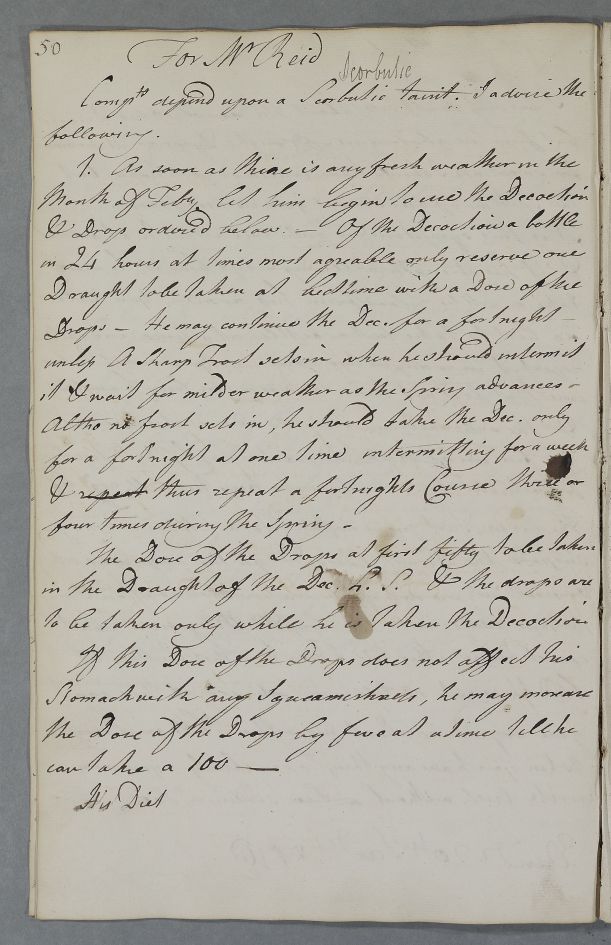 50
For Mr Reid
Scorbutic
Compts depend upon a Scorbutic taint. I advise the
following.
1. As soon as there is any fresh weather in the
Month of Feby, let him begin to use the Decoction
& Drops ordered below. — Of the Decoction a bottle
in 24 hours at times most agreable only reserve one
Draught to be taken at bedtime with a Dose of the
Drops — He may continue the Dec. for a fortnight —
unless A Sharp Frost sets in when he should intermit
it & wait for milder weather as the Spring advances —
Altho no frost sets in, he should take the Dec. only
for a fortnight at one time intermitting for a week
& repeat thus repeat a fortnights Course three or
four times during the Spring —
The Dose of the Drops at first fifty to be taken
in the Draught of the Dec. h. S. & the drops are
to be taken only while he is taken the Decoction
If this Dose of the Drops does not affect his
Stomach with any Squeamishness, he may increase
the Dose of the Drops by five at a time till he
can take a 100 —
His Diet